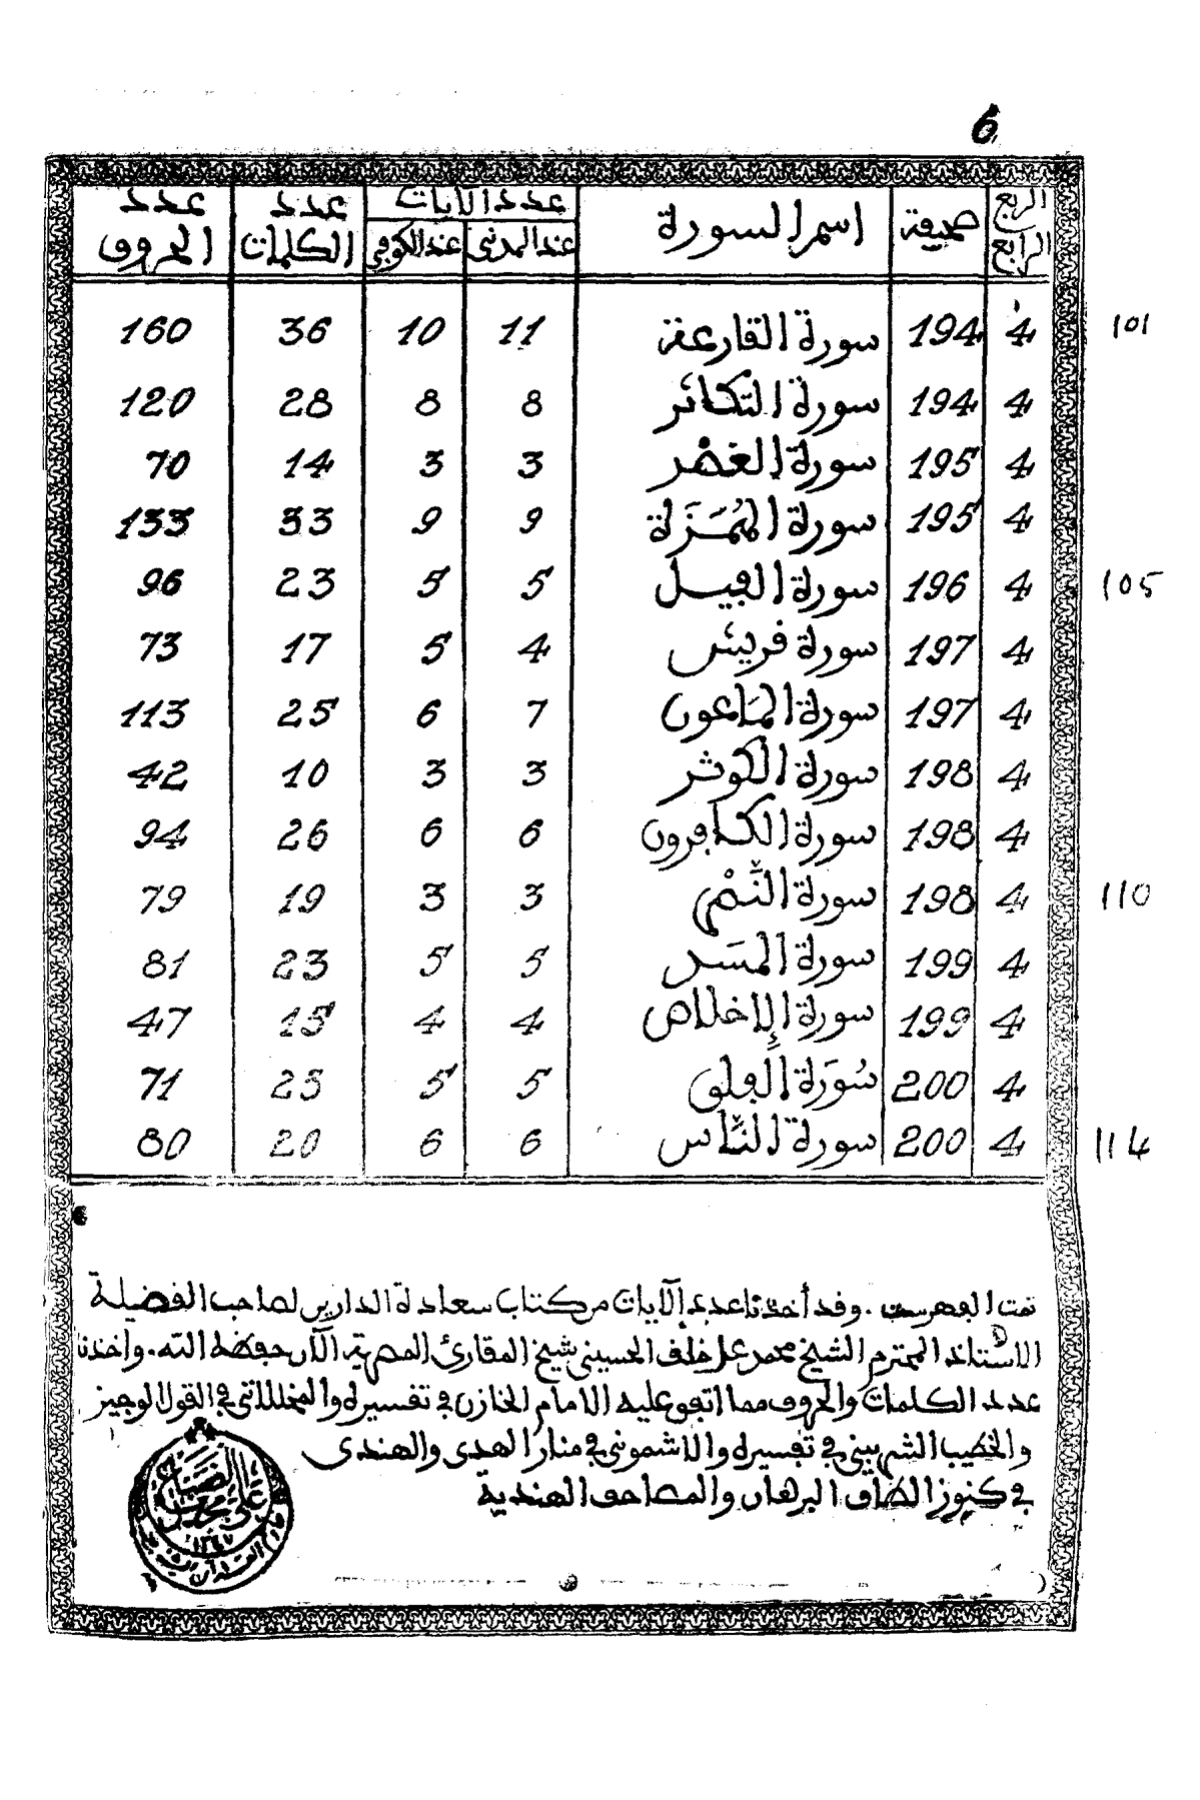 6
الربع الرابع | صحيفة | اسم السورة | عدد الآيات | عدد الكلمات | عدد الحروف
عند المدني | عند الكوفي
4 | 194 | سورة القارعة | 11 | 10 | 36 | 160 | 101
4 | 194 | سورة التكاثر | 8 | 8 | 28 | 120
4 | 195 | سورة العصر | 3 | 3 | 14 | 70
4 | 195 | سورة الهُمَزَة | 9 | 9 | 33 | 133
4 | 196 | سورة الفيل | 5 | 5 | 23 | 96 | 105
4 | 197 | سورة قريش | 4 | 5 | 17 | 73
4 | 197 | سورة المَاعون | 7 | 6 | 25 | 113
4 | 198 | سورة الكوثر | 3 | 3 | 10 | 42
4 | 198 | سورة الكافرون | 6 | 6 | 26 | 94
4 | 198 | سورة النَّصْر | 3 | 3 | 19 | 79 | 110
4 | 199 | سورة المَسَد | 5 | 5 | 23 | 81
4 | 199 | سورة الإخلاص | 4 | 4 | 15 | 47
4 | 200 | سُورَة الفلق | 5 | 5 | 23 | 71
4 | 200 | سورة النَّاس | 6 | 6 | 20 | 80 | 114
تمت الفهرست. وقد أخذنا عدد الآيات من كتاب سعادة الدارين لصاحب الفضيلة
الاستاذ المحترم الشيخ محمد علي خلف الحسيني شيخ المقارئ المصرية الآن حفظه الله. واخذنا
عدد الكلمات والحروف مما اتفق عليه الامام الخازن في تفسيره والمخللاتي في القول الوجيز
والخطيب الشربيني في تفسيره والاشموني في منار الهدى والهندى
في كنوز الطاف البرهان والمصاحف الهندية
علي محمد الضباع
١٣٤٧